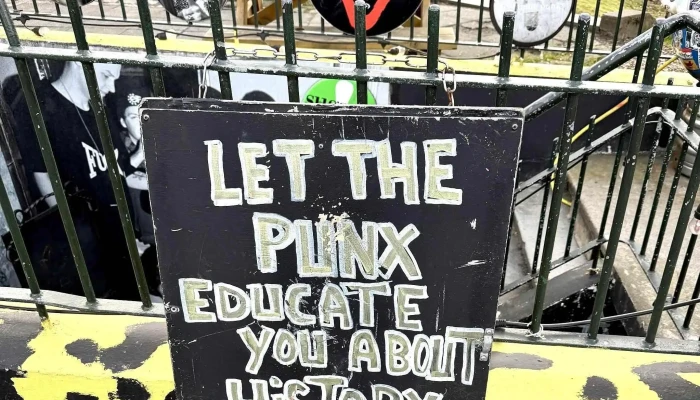 LET THE
PUNX
EDUCATE
YOU ABOUT
HiSTORY